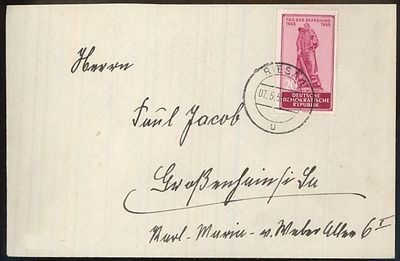 TAG DER BEFREIUNG
1945 1955
DEUTSCHE
DEMOKRATISCHE
REPUBLIK
RIESA
u
Herrn
Paul Jacob
Großenhain i Sa
Karl-Maria-v. Weber Allee 6 I